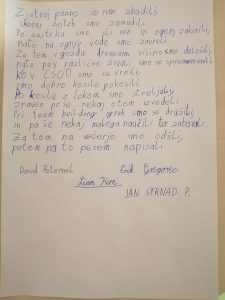 Zjutraj pozno so nas zbudili,
skoraj zajtrk smo zamudili.
Po zajtrku smo šli ven in ogenj zakurili,
nato na ognju vodo smo zavreli.
Za tem v gozdu drevesom višino smo določili,
nato pa v različne živali smo se spremenili.
Ko v CŠOD smo se vrnili,
smo dobro kosilo pokosili.
Po kosilu z lokom smo streljali,
zraven pa še nekaj o tem izvedeli.
Pri team building igrah smo se družili,
in pa še nekaj malega naučili ter zabavali.
Za tem na večerjo smo odšli,
potem pa to pesem napisali
David Potemel Erik Gregorec
Liam Kern
JAN STRNAD P.